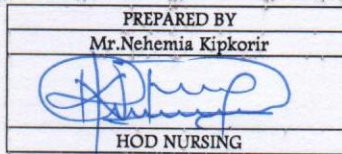 PREPARED BY
Mr.Nehemia Kipkorir
HOD NURSING